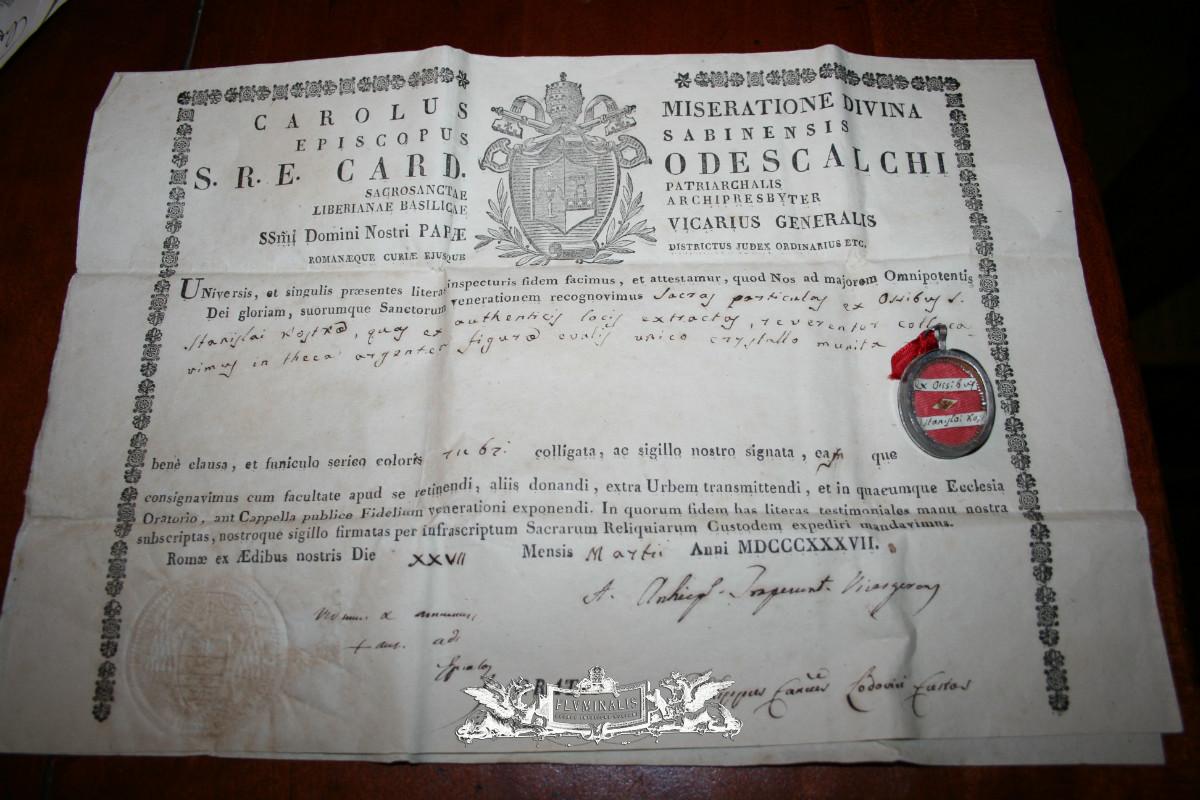 CAROLUS MISERATIONE DIVINA
EPISCOPUS SABINENSIS
S. R. E. CARD. ODESCALCHI
SACROSANCTAE PATRIARCHALIS
LIBERIANAE BASILICAE ARCHIPRESBYTER
SSm̃i Domini Nostri PAPÆ VICARIUS GENERALIS
ROMANÆQUE CURIÆ EJUSQUE DISTRICTUS JUDEX ORDINARIUS ETC.
UNiversis, et singulis præsentes litera inspecturis fidem facimus, et attestamur, quod Nos ad majorem Omnipotentis
Dei gloriam, suorumque Sanctorum venerationem recognovimus Sacras particulas ex Ossibus S.
Stanislai Kostra, quas ex authenticis locis extractas, reverenter colloca
vimus in theca argentea figura ovalis unico crystallo munita
ex Ossibus
Stanislai Kos
benè clausa, et funiculo serico coloris rubri colligata, ac sigillo nostro signata, easq que
consignavimus cum facultate apud se retinendi, aliis donandi, extra Urbem transmittendi, et in quacumque Ecclesia
Oratorio, aut Cappella publico Fidelium venerationi exponendi. In quorum fidem has literas testimoniales manu nostra
subscriptas, nostroque sigillo firmatas per infrascriptum Sacrarum Reliquiarum Custodem expediri mandavimus.
Romæ ex Ædibus nostris Die XXVII Mensis Martii Anni MDCCCXXXVII.
A. Vicesgerens
Custos
FLVMINALIS